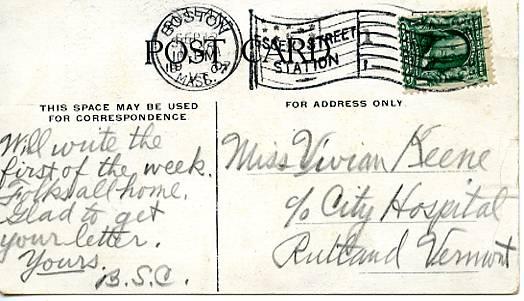 BOSTON
MASS.
ESSEX STREET
STATION
POST CARD
THIS SPACE MAY BE USED
FOR CORRESPONDENCE
FOR ADDRESS ONLY
Will write the
first of the week.
Folks all home.
Glad to get
your letter.
Yours
B.S.C.
Miss Vivian Keene
c/o City Hospital
Rutland Vermont